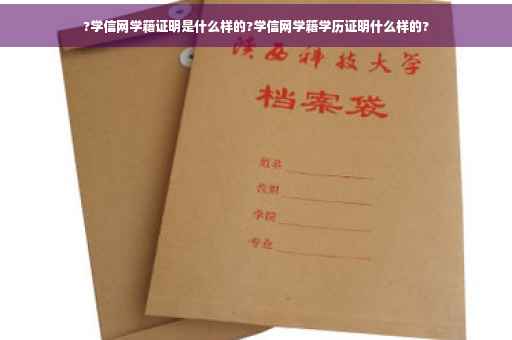 ?学信网学籍证明是什么样的?学信网学籍学历证明什么样的?
陕西科技大学
档案袋
姓名
学院
专业